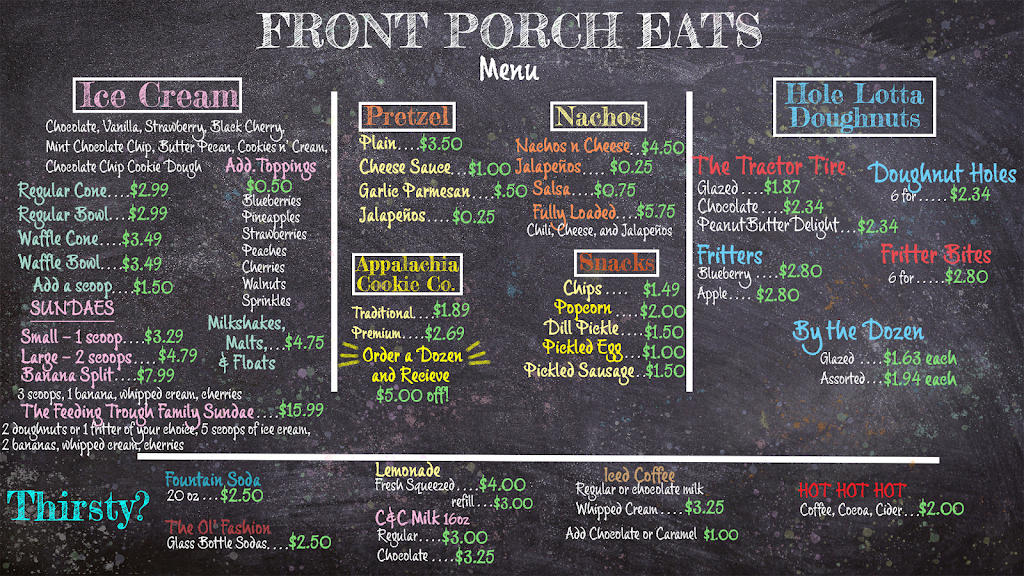 FRONT PORCH EATS
Menu
Ice Cream
Chocolate, Vanilla, Strawberry, Black Cherry,
Mint Chocolate Chip, Butter Pecan, Cookies n' Cream,
Chocolate Chip Cookie Dough
Regular Cone....$2.99
Regular Bowl...$2.99
Waffle Cone....$3.49
Waffle Bowl....$3.49
Add a scoop....$1.50
Add Toppings
$0.50
Blueberries
Pineapples
Strawberries
Peaches
Cherries
Walnuts
Sprinkles
SUNDAES
Small - 1 scoop....$3.29
Large - 2 scoops....$4.79
Banana Split....$7.99
3 scoops, 1 banana, whipped cream, cherries
Milkshakes,
Malts,...$4.75
& Floats
The Feeding Trough Family Sundae....$15.99
2 doughnuts or 1 fritter of your choice, 5 scoops of ice cream,
2 bananas, whipped cream, cherries
Pretzel
Plain....$3.50
Cheese Sauce....$1.00
Garlic Parmesan....$.50
Jalapeños....$0.25
Nachos
Nachos n Cheese...$4.50
Jalapeños....$0.25
Salsa....$0.75
Fully Loaded...$5.75
Chili, Cheese, and Jalapeños
Appalachia
Cookie Co.
Traditional....$1.89
Premium....$2.69
Order a Dozen
and Recieve
$5.00 off!
Snacks
Chips .... $1.49
Popcorn ....$2.00
Dill Pickle ....$1.50
Pickled Egg ....$1.00
Pickled Sausage..$1.50
Hole Lotta
Doughnuts
The Tractor Tire
Glazed ....$1.87
Chocolate ....$2.34
Peanut Butter Delight...$2.34
Doughnut Holes
6 for .....$2.34
Fritters
Blueberry ....$2.80
Apple.... $2.80
Fritter Bites
6 for .....$2.80
By the Dozen
Glazed ....$1.63 each
Assorted...$1.94 each
Thirsty?
Fountain Soda
20 oz ...$2.50
The Ol' Fashion
Glass Bottle Sodas....$2.50
Lemonade
Fresh Squeezed....$4.00
refill....$3.00
C&C Milk 16oz
Regular....$3.00
Chocolate ....$3.25
Iced Coffee
Regular or chocolate milk
Whipped Cream....$3.25
Add Chocolate or Caramel $1.00
HOT HOT HOT
Coffee, Cocoa, Cider...$2.00